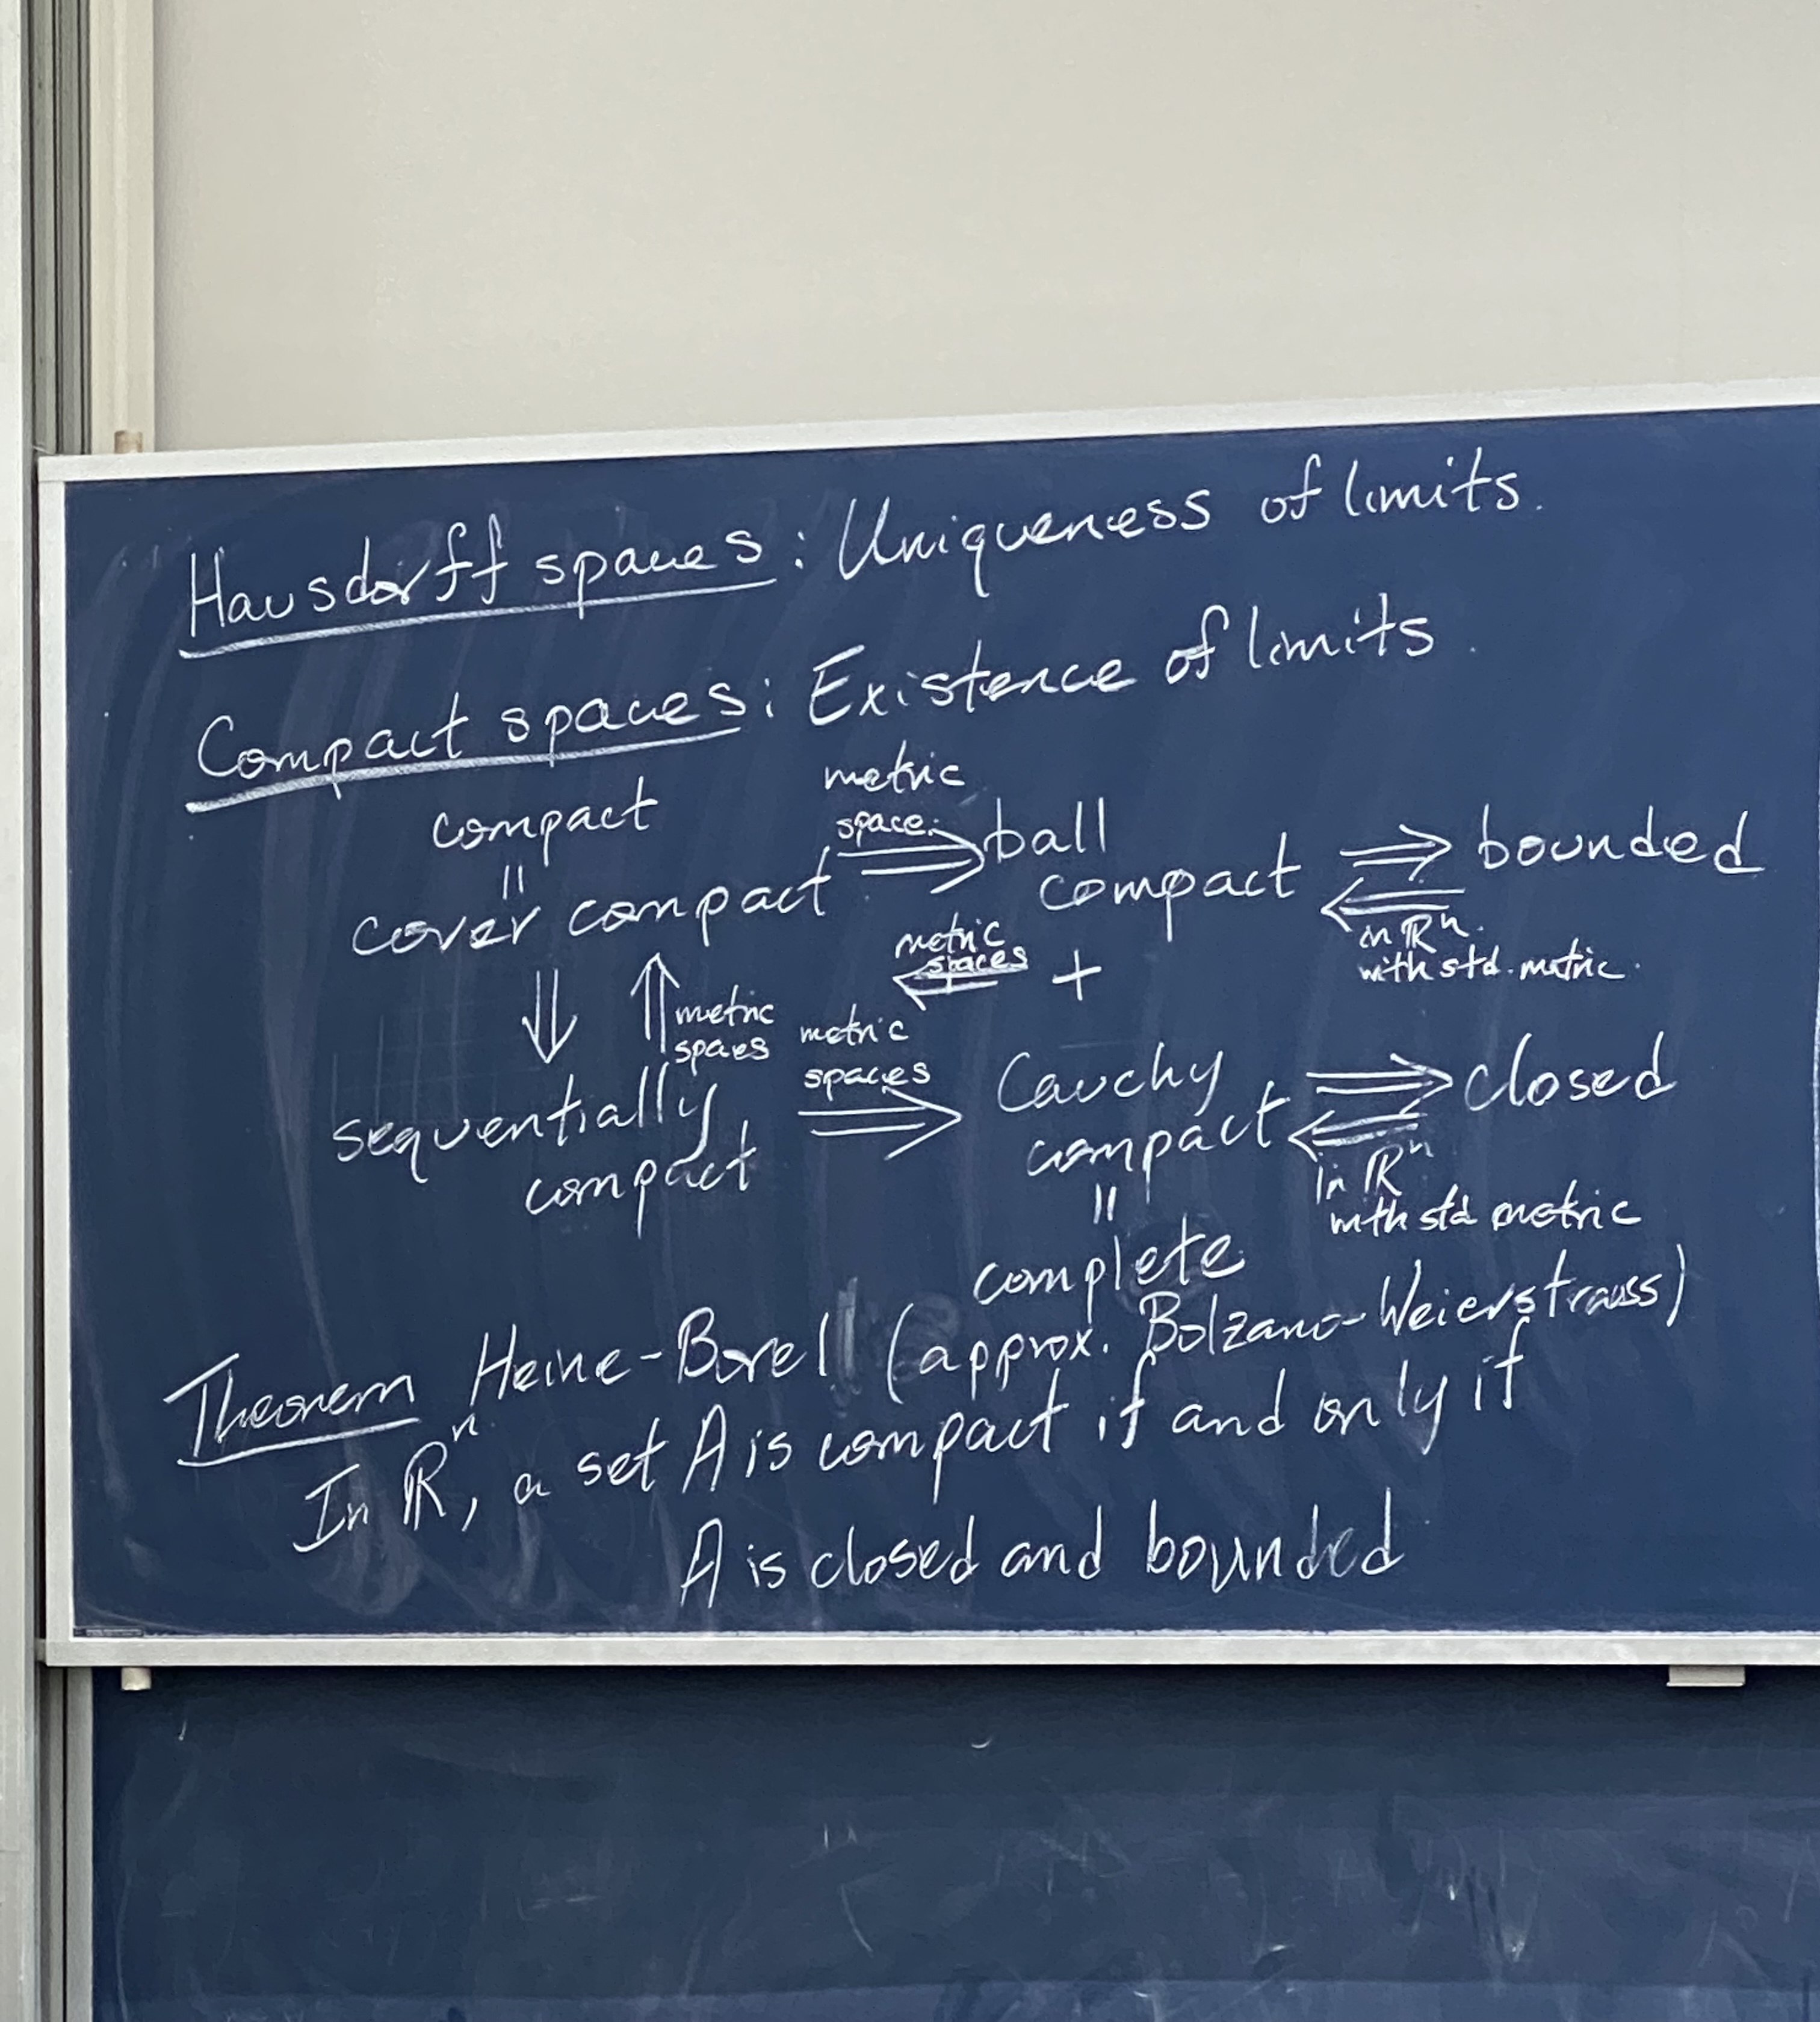 Hausdorff spaces: Uniqueness of limits.
Compact spaces: Existence of limits.
compact
=
cover compact
metric
space.
⇒ ball
compact
⇒ bounded
⇐
in ℝⁿ
with std. metric.
⇓
⇑ metric
spaces
metric
spaces
⇐
+
sequentially
compact
metric
spaces
⇒
Cauchy
compact
⇒ closed
⇐
in ℝⁿ
with std metric
=
complete
Theorem Heine-Borel (approx. Bolzano-Weierstrauss)
In ℝⁿ, a set A is compact if and only if
A is closed and bounded